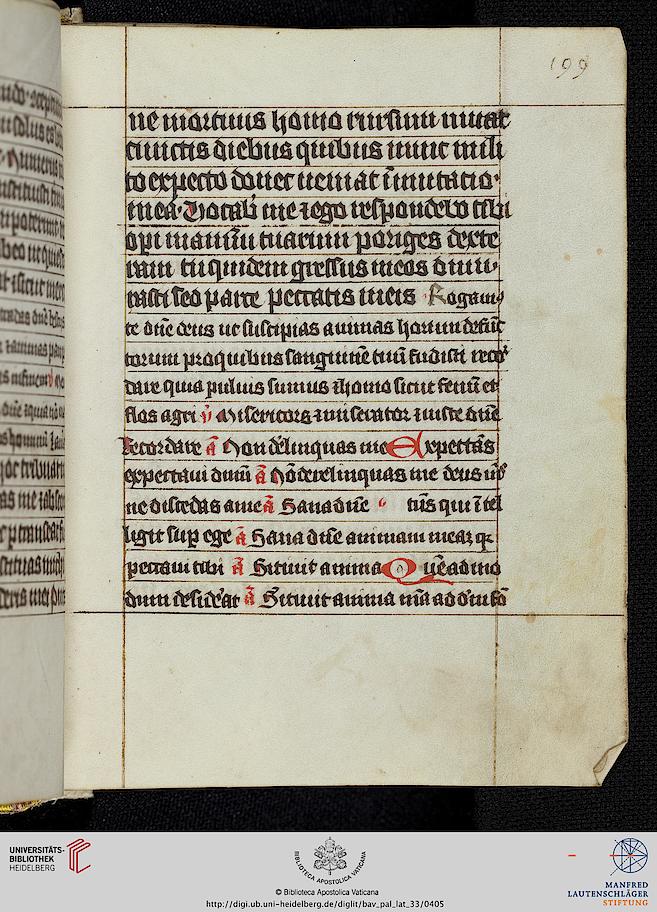 199
ne mortuus homo rursum viuat
cunctis diebus quibus nunc mili
to expecto donec ueniat īmutatio
mea Uocab me ⁊ ego respondebo tibi
opi manuū tuarum poriges dexte
ram tu quidem gressus meos dinu
rasti sed parce peccatis meis Rogamꝰ
te dn̄e deus ut suscipias animas horum defūc
torum pro quibus sanguinē tuū fudisti recor
dare quia puluis sumus ⁊ homo sicut fenū et
flos agri v̄ Misericors ⁊ miserator ⁊ iuste dn̄e
Recordare ā Non delinquas me Expectās
expectaui dūm ā Nō derelinquas me deus ms̄
ne discedas a me ā Sana dn̄e tūs qui ītel
ligit sup ege ā Sana dn̄e animam meaꝫ qꝛ
peccaui tibi ā Sitiuit anima Quēadmo
dum desid'at ā Sitiuit anima mā ad d'm fō
UNIVERSITÄTS-
BIBLIOTHEK
HEIDELBERG
BIBLIOTECA APOSTOLICA VATICANA
© Biblioteca Apostolica Vaticana
http://digi.ub.uni-heidelberg.de/diglit/bav_pal_lat_33/0405
MANFRED
LAUTENSCHLÄGER
STIFTUNG